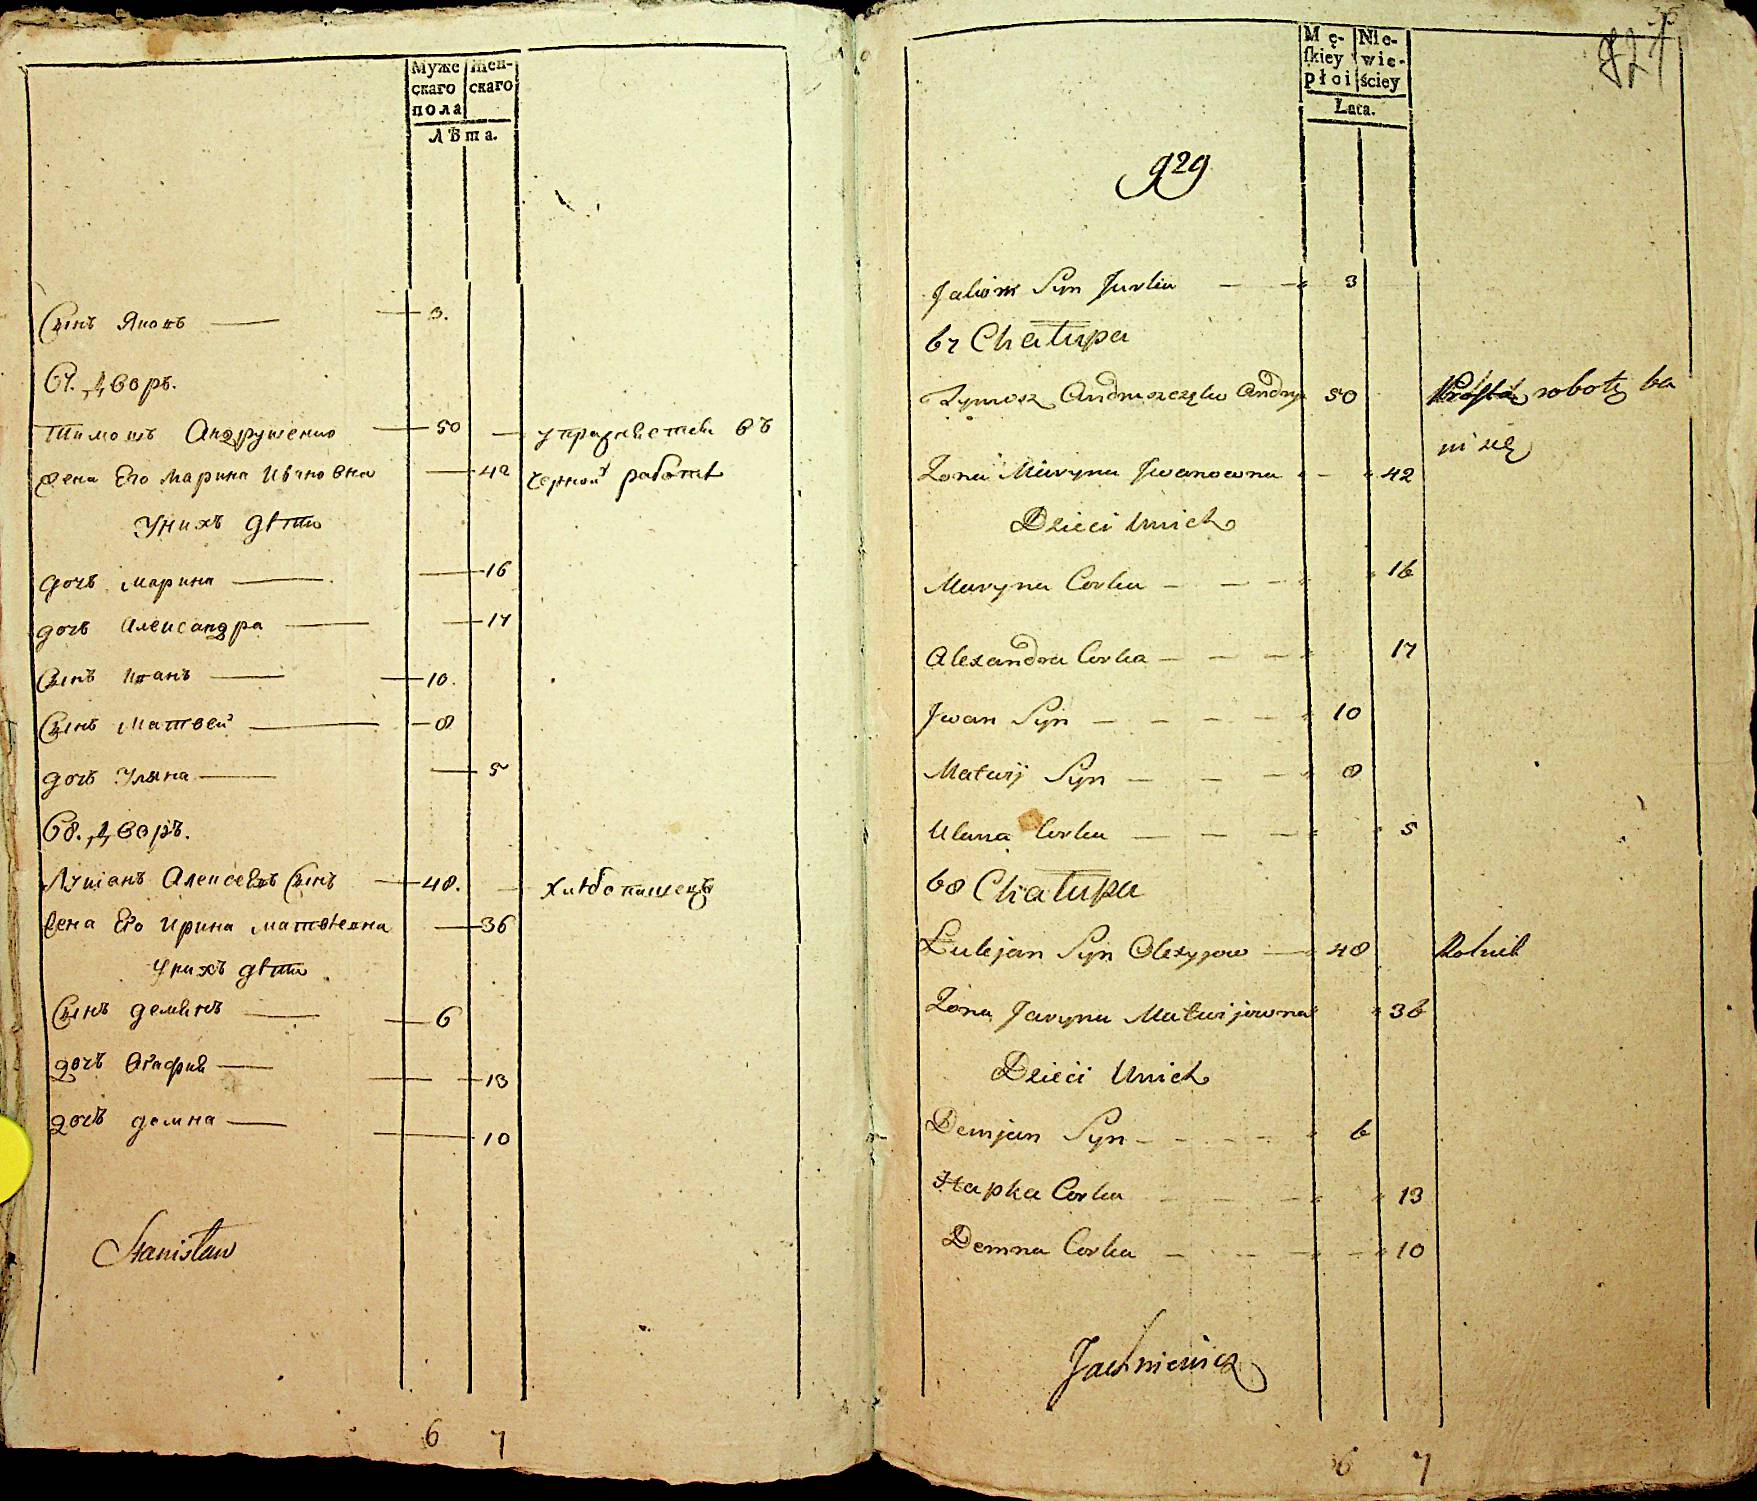 Муже
скаго
пола
Жен-
скаго
Лѣта.
Сынъ Яковъ — 3.
67. Дворъ.
Тимошъ Андрушенко — 50 — упражнѣется въ
жена Его Марина Ивановна — 42 черной работѣ
У нихъ дѣти
дочъ Марина — 16
дочъ Александра — 17
Сынъ Иванъ — 10.
Сынъ Матвей — 8
дочъ Уляна — 5
68. Дворъ.
Лукіанъ Алексеевъ Сынъ — 48. — хлѣбопашецъ
жена Его Ирина Матвѣевна — 36
У нихъ дѣти
Сынъ Демянъ — 6
дочъ Агафия — 13
дочъ Демна — 10
Stanisław
6 7
Mę-
skiey
płci
Nie-
wie-
ściey
Lata.
929
821
Jakow Syn Jurka — 3
67 Chałupa
Tymosz Andruszczęko 50 robotą ba
wi się
Zona Maryna Jwanowna — 42
Dzieci Unich
Maryna Corka — 16
Alexandra Corka — 17
Jwan Syn — 10
Matwij Syn — 8
Ulana Corka — 5
68 Chałupa
Łukjan Syn Olexyjow — 48 Rolnik
Zona Jaryna Matwijowna 36
Dzieci Unich
Demjan Syn — 6
Hapka Corka — 13
Demna Corka — 10
Jachniewicz
6 7